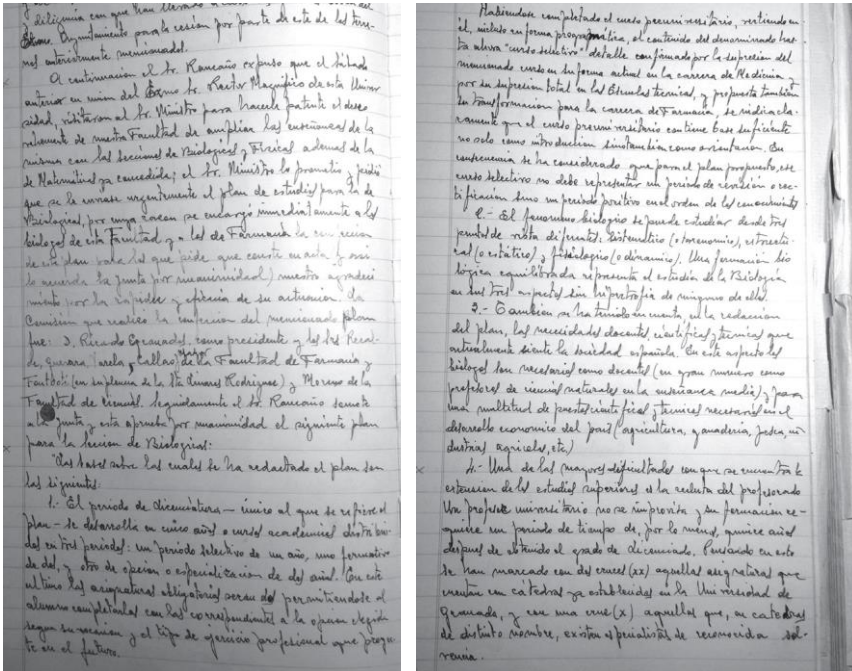 y diligencia con que han llevado a
argumentación para la cesión por parte de este de los terre-
nos anteriormente mencionados.
A continuación el Sr. Rancaño expuso que el sábado
anterior en unión del Exmo Sr. Rector Magnífico de esta Univer
sidad, visitaron al Sr. Ministro para hacerle patente el deseo
vehemente de nuestra Facultad de ampliar las enseñanzas de la
misma con las Secciones de Biológicas y Físicas ademas de la
de Matemáticas ya concedida; el Sr. Ministro lo prometio y pidió
que se le enviase urgentemente el plan de estudios para la de
Biológicas, por cuya razon se encargó inmediatamente a los
biologos de esta Facultad y a los de Farmacia la confeccion
de este plan para los que pide que conste en acta (y así
lo acuerda la Junta por unanimidad) nuestro agradeci
miento por la rapidez y eficacia de su actuacion. La
Comisión que realizó la confeccion del mencionado plan
fue: D. Ricardo Granados, como presidente y los Sres Recal-
de, Guevara, Varela, Callao, de la Facultad de Farmacia y
Fontboté (en suplencia de la Srta Linares Rodriguez) y Moreno de la
Facultad de Ciencias. Seguidamente el Sr. Rancaño somete
a la Junta, y esta aprueba por unanimidad el siguiente plan
para la Seccion de Biologicas:
"Las bases sobre las cuales se ha redactado el plan son
las siguientes:
1.- El periodo de Licenciatura — único al que se refiere el
plan — se desarrolla en cinco años o cursos academicos distribui
dos en tres periodos: un periodo selectivo de un año, uno formativo
de dos, y otro de opcion o especializacion de dos años. En este
ultimo las asignaturas obligatorias seran dos permitiendose al
alumno completarlas con las correspondientes a la opcion elegida
segun su vocacion y el tipo de ejercicio profesional que proyec
te en el futuro.
Habiendose completado el curso preuniversitario, vertiendo en
él, incluso en forma programática, el contenido del denominado has
ta ahora "curso selectivo" detalle confirmado por la supresion del
mencionado curso en su forma actual en la carrera de Medicina y
por su supresion total en las Escuelas tecnicas, y propuesta tambien
su transformacion para la carrera de Farmacia, se indica cla-
ramente que el curso preuniversitario contiene base suficiente
no solo como introduccion sino tambien como orientacion. En
consecuencia se ha considerado que para el plan propuesto, ese
curso selectivo no debe representar un periodo de revision o rec-
tificación sino un periodo positivo en el orden de los conocimientos
2.- El fenomeno biologico se puede estudiar desde tres
puntos de vista diferentes: Sistematico (o taxonomico), estructu-
ral (o estático) y fisiologico (o dinamico). Una formacion bio
lógica equilibrada representa el estudio de la Biología
en sus tres aspectos sin hipertrofia de ninguno de ellos.
3.- Tambien se ha tenido en cuenta en la redaccion
del plan, las necesidades docentes, cientificas y tecnicas que
actualmente siente la sociedad española. En este aspecto los
biologos son necesarios como docentes (en gran numero como
profesores de ciencias naturales en la enseñanza media) y para
una multitud de puestos cientificos y tecnicos necesarios en el
desarrollo economico del pais (agricultura, ganaderia, pesca, in
dustrias agricolas, etc)
4.- Una de las mayores dificultades con que se encuentra la
extension de los estudios superiores es la recluta del profesorado
Un profesor universitario no se improvisa y su formacion re-
quiere un periodo de tiempo de, por lo menos, quince años
despues de obtenido el grado de licenciado. Pensando en esto
se han marcado con dos cruces (xx) aquellas asignaturas que
cuentan con cátedras ya establecidas en la Universidad de
Granada, y con una cruz (x) aquellas que, en catedras
de distinto nombre, existen especialistas de reconocida sol-
vencia.